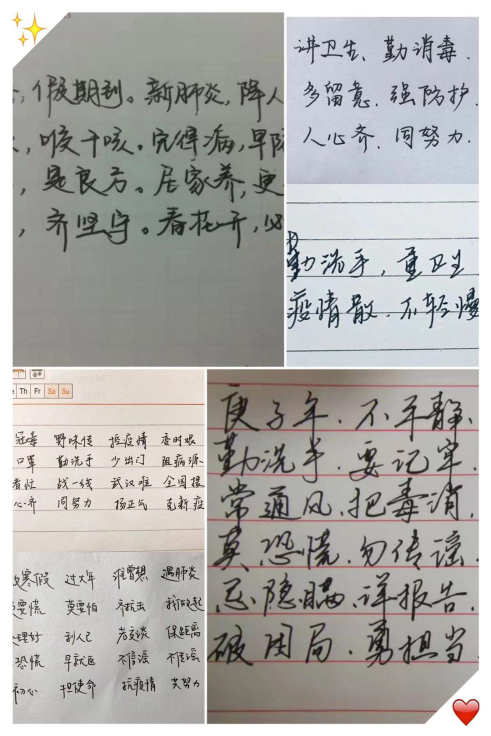 ，假期到。新肺炎，降人
，喉干咳。究得病，早防
，是良方。居家养，更
，齐坚守。春花开，必
讲卫生、勤消毒.
多留意. 强防护.
人心齐. 同努力.
勤洗手，重卫生
疫情散. 不轻慢
Th Fr Sa Su
冠毒 野味传 控疫情 吝时艰
口罩 勤洗手 少出门 阻病源
者位 战一线 武汉难 全国援
心齐 同努力 扬正气 克新疫
寒假 过大年 谁曾想 遇肺炎
要慌 莫要怕 齐抗击 抗
理好 利人己 若交谈 保距离
恐慌 早就医 不信谣 不传谣
初心 担使命 抗疫情 共努力
庚子年. 不平静.
勤洗手. 要记牢.
常通风. 把毒消.
莫恐慌. 勿传谣.
忌隐瞒. 详报告.
破困局. 勇担当.